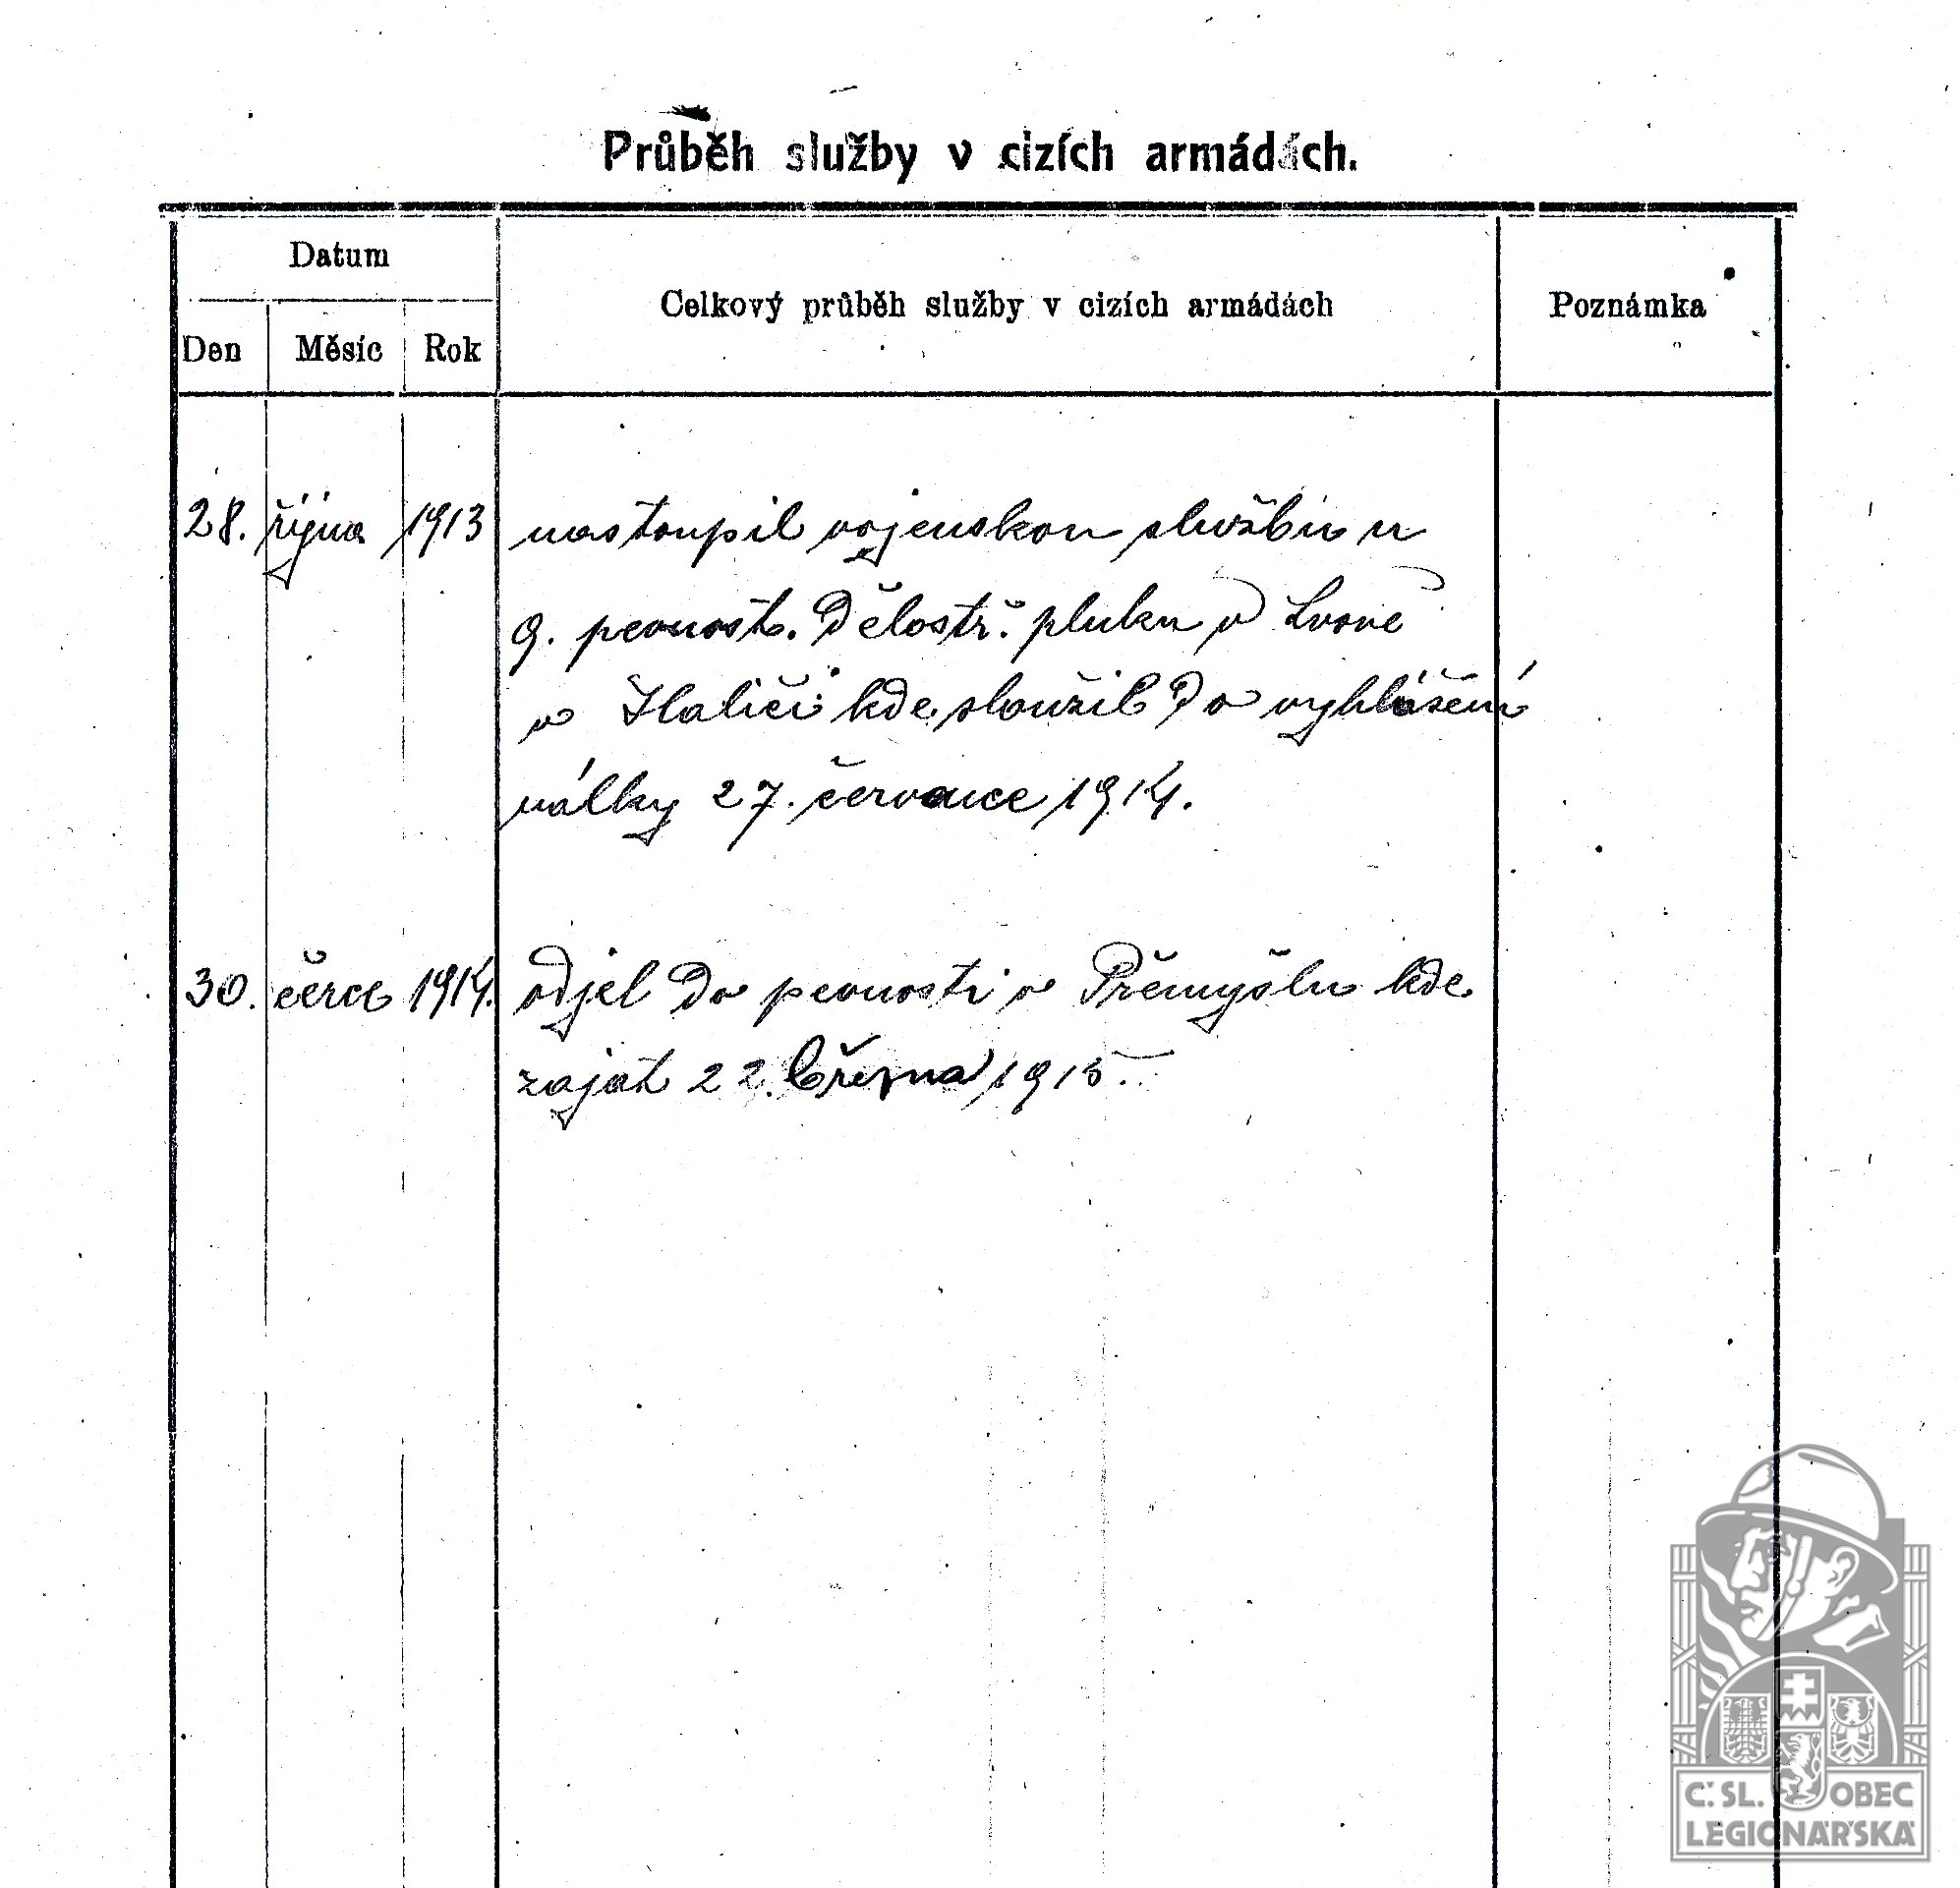 Průběh služby v cizích armádách.
Datum
Celkový průběh služby v cizích armádách
Poznámka
Den Měsíc Rok
28. října 1913 nastoupil vojenskou službu u
9. pevnost. Dělostř. pluku v Lvově
v Haliči kde sloužil do vyhlášení
války 27. července 1914.
30. černce 1914. odjel do pevnosti v Přemyšlu kde
zajat 22. března 1915.
Č. SL. OBEC
LEGIONÁŘSKÁ